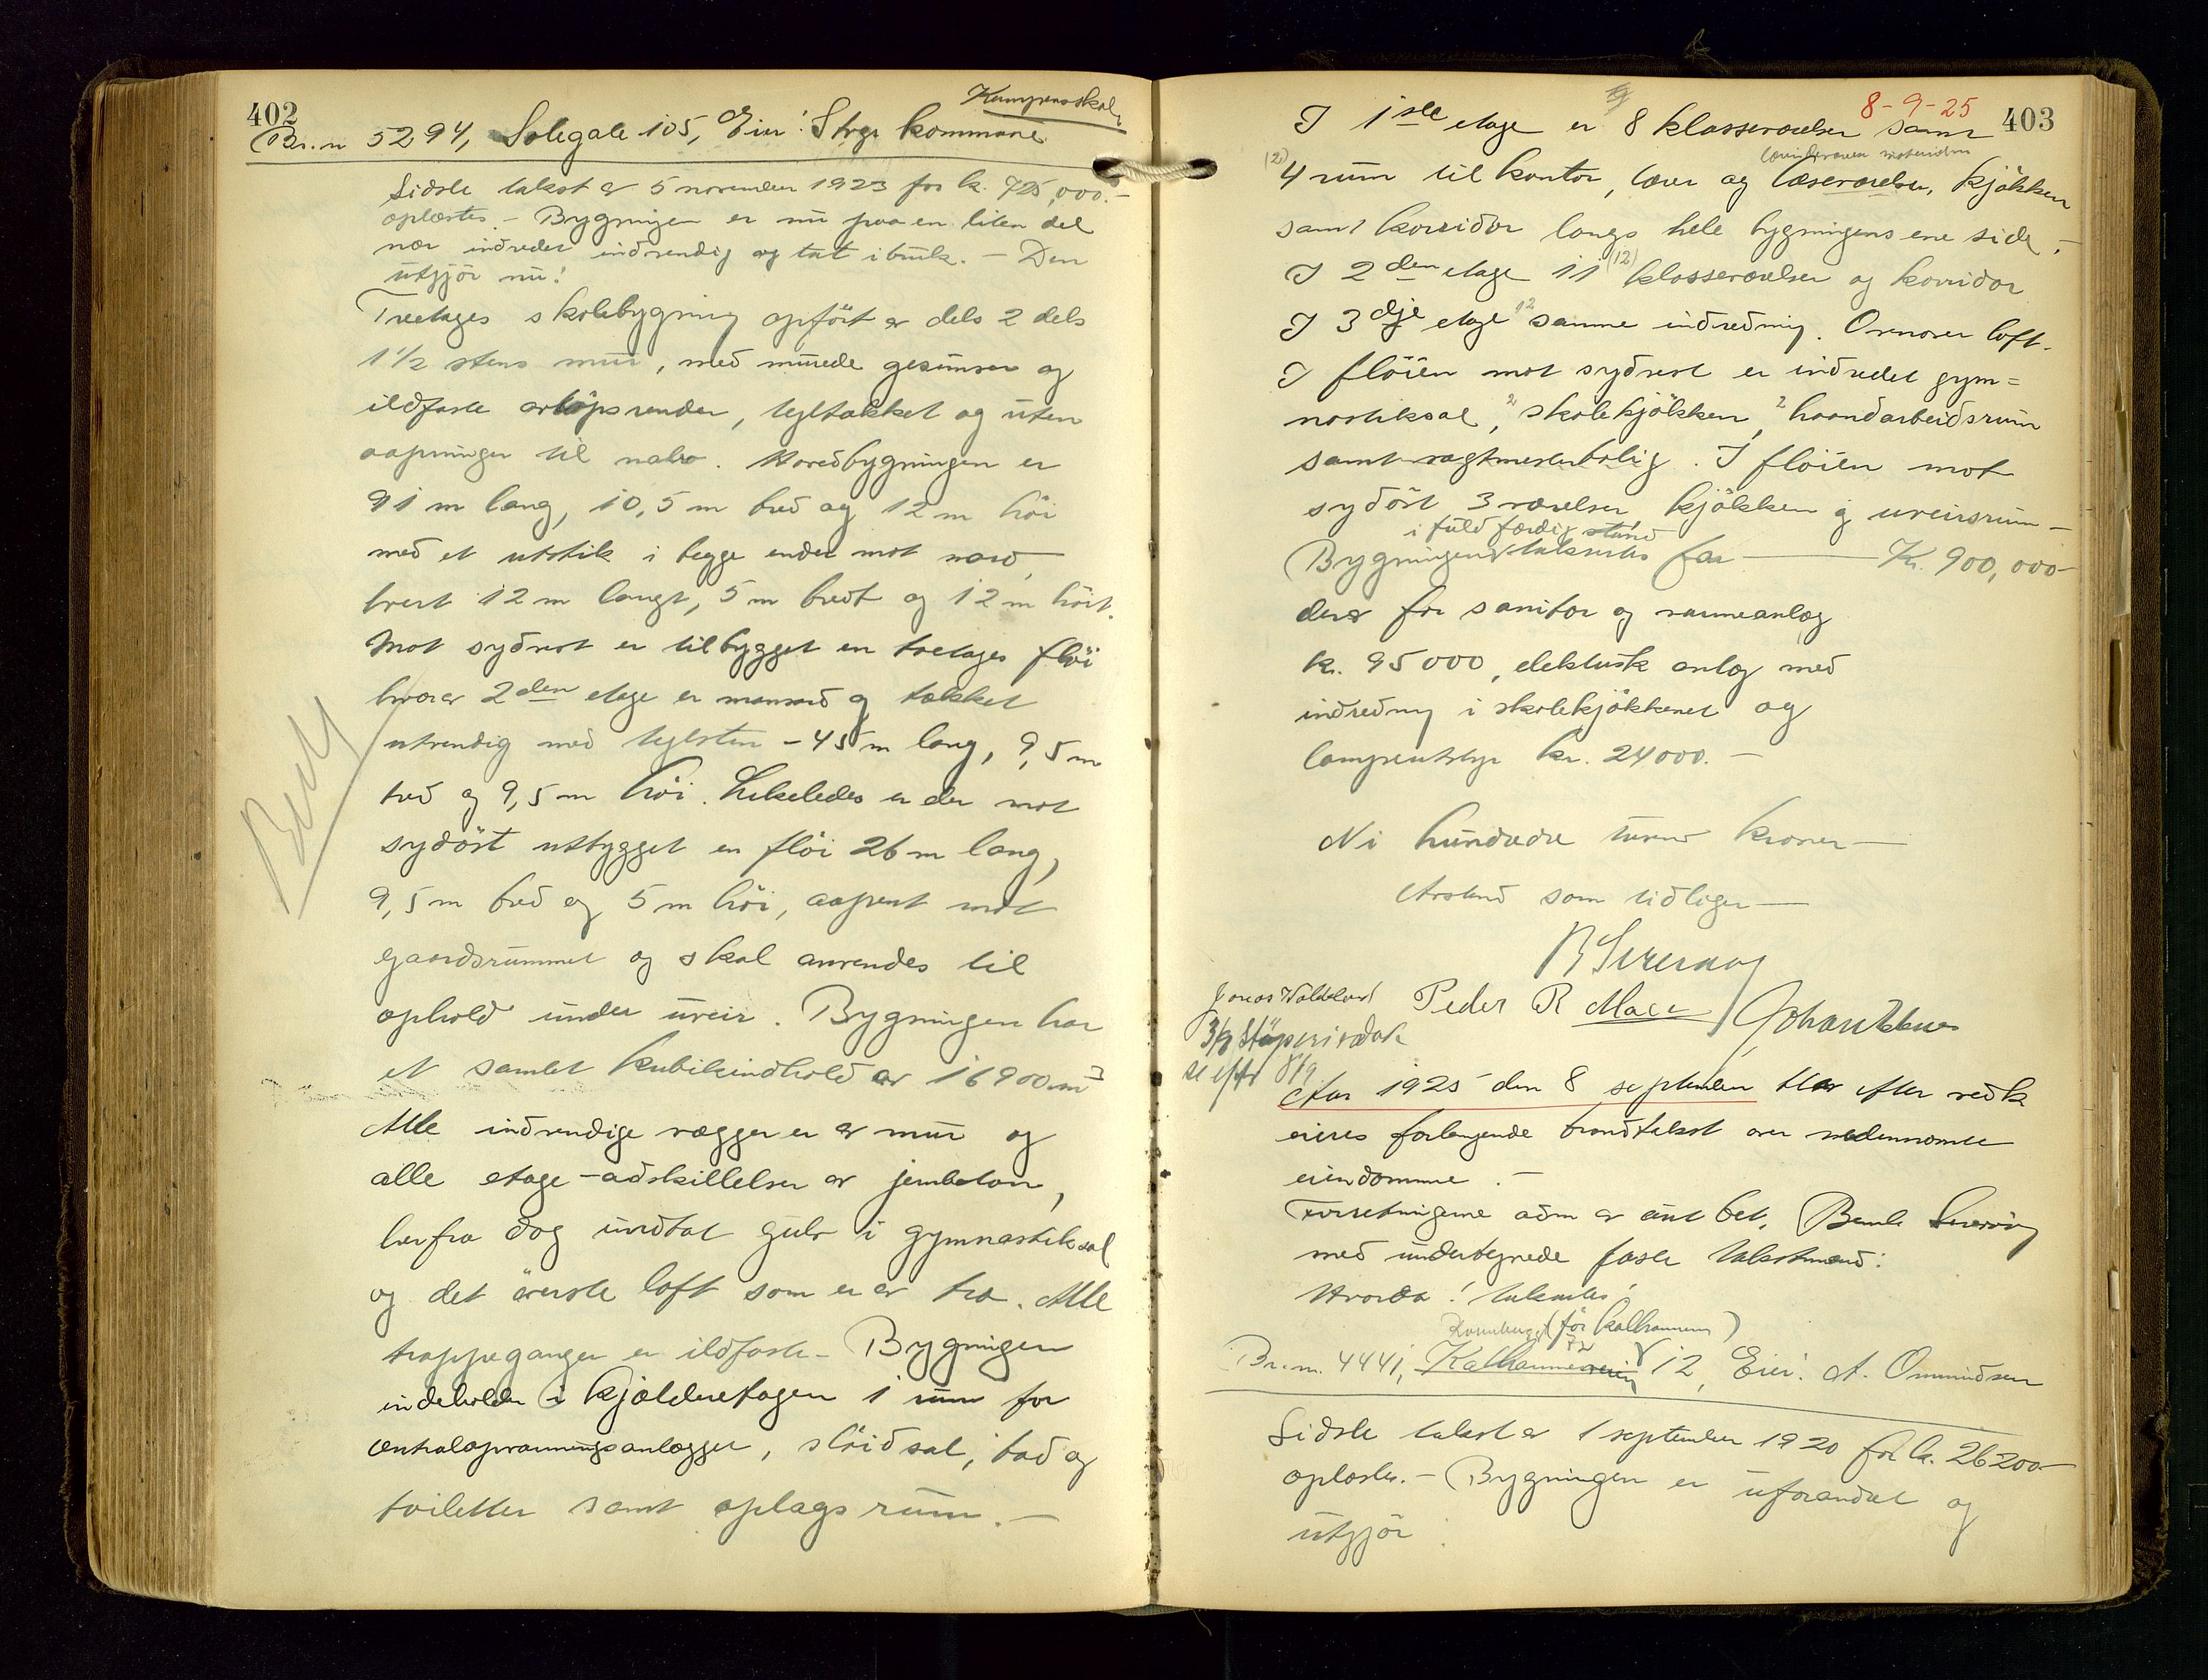 402
Kampens skole
Br.n 5294, Solegate 105, Eier: Stvgr kommune
Sidste takst er 5 november 1923 for kr. 725,000.-
oplæstes. - Bygningen er nu paa en liten del
nær indredet indvendig og tat i bruk. - Den
utgjör nu:
Treetages skolebygning opfört av dels 2 dels
1 1/2 stens mur, med murede gesimser og
ildfaste avløpsrender, tegltækket og uten
aapninger til nabo. Hovedbygningen er
91 m lang, 10,5 m bred og 12 m höi
med et utstik i begge ender mot nord-
vest 12 m langt, 5 m bredt og 12 m höit.
Mot sydvest er tilbygget en toetages flöi
hvorav 2den etage er mansard og tækket
utvendig med teglsten - 45 m lang, 9,5 m
bred og 9,5 m höi. Likeledes er der mot
sydöst utbygget en flöi 26 m lang,
9,5 m bred og 5 m höi, aapent mot
gaardsrummet og skal anvendes til
ophold under uveir. Bygningen har
et samlet kubikindhold av 16900 m3
Alle indvendige vægger er av mur og
alle etage-adskillelser av jernbeton,
herfra dog undtat gulv i gymnastiksal
og det överste loft som er av træ. Alle
trappeganger er ildfaste - Bygningen
indeholder i kjælderetagen 1 rum for
centralopvarmningsanlægget, slöidsal, bad og
toiletter samt oplagsrum. -
8-9-25
403
I 1ste etage er 8 klasseværelser samt
(2)
4 rum til kontor, lærer og læseværelser, kjökken
samt korridor langs hele bygningens ene side. -
I 2den etage 11 (12) klasseværelser og korridor
I 3dje etage 12 samme indredning. Ovenover loft.
I flöien mot sydvest er indredet gym=
nastiksal, 2 skolekjökken, 2 haandarbeidsrum
samt vagtmesterbolig. I flöien mot
sydöst 3 værelser kjökken og uveirsrum -
i fuld færdig stand
Bygningen takseres for — Kr. 900,000-
derav for sanitær og varmeanlæg
kr. 95000, elektrisk anlæg med
indredning i skolekjökkenet og
lampeutstyr kr. 24000. -
Ni hundrede tusen kroner —
Avstand som tidligere —
B Sverdrup
Peder R Moer
se efter 8/9
Aar 1925 den 8 september blev efter vedk
eieres forlangende brandtakst over nedennævnte
eiendomme. -
Forretningerne adm av ant bet. Bernh Sverdrup
med undertegnede faste takstmænd:
Hvorda! takseres:
(för Kalhammern)
72
Br.n. 4441, Kalhammervein 12, Eier: A. Ommundsen
Sidste takst av 1 september 1920 for kr. 26200-
oplæstes. - Bygningen er uforandret og
utgjör